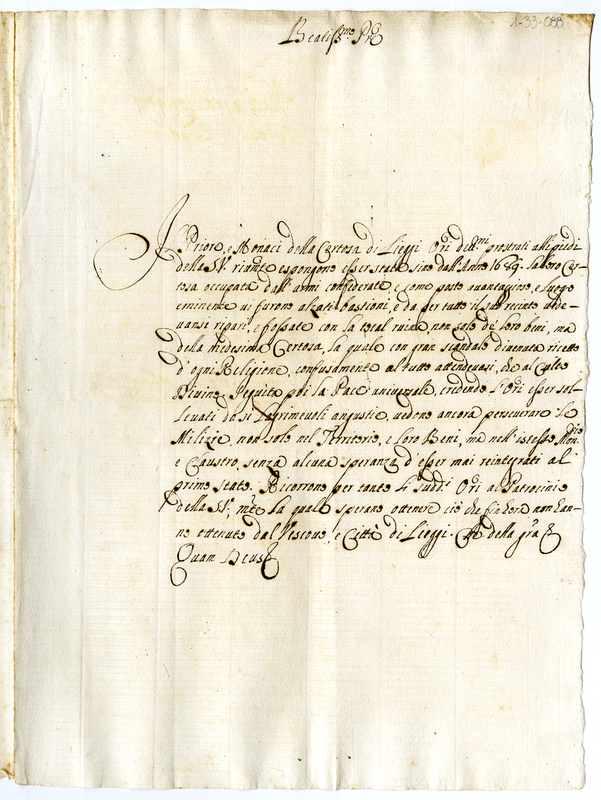 1-33-088
Beatiss.mo P're
Il Priore, e Monaci della Certosa di Lieggi Or'i deu.mi prostrati alli piedi
della S.V. riuer.te espongono esser stata sino dall'Anno 1689. la loro Cer-
tosa occupata dall'armi confederate, e come posto auantagioso, e luogo
eminente ui furono alzati bastioni, e da per tutto il suo recinto uede-
uansi ripari, e fossate con la total ruina, non solo de' loro beni, ma
della medesima Certosa, la quale con gran scandalo diuenuta ricetto
d'ogni Religione, confusamente al tutto attendeuasi, che al Culto
Diuino. Seguita poi la Pace uniuersale, credendo l'Or'i esser sol-
leuati da sì lagrimeuoli angustie, uedono ancora perseuerare le
Milizie, non solo nel Territorio, e loro Beni, ma nell'istesso Mon.rio
e Claustro, senza alcuna speranza d'esser mai reintegrati al
primo stato. Ricorrono per tanto li sudd.i Or'i al Patrocinio
della S.V., med.e la quale sperano ottenere ciò che fin hora non han-
no ottenuto dal Vescouo, e Città di Lieggi. Che della gra' &
Quam Deus &